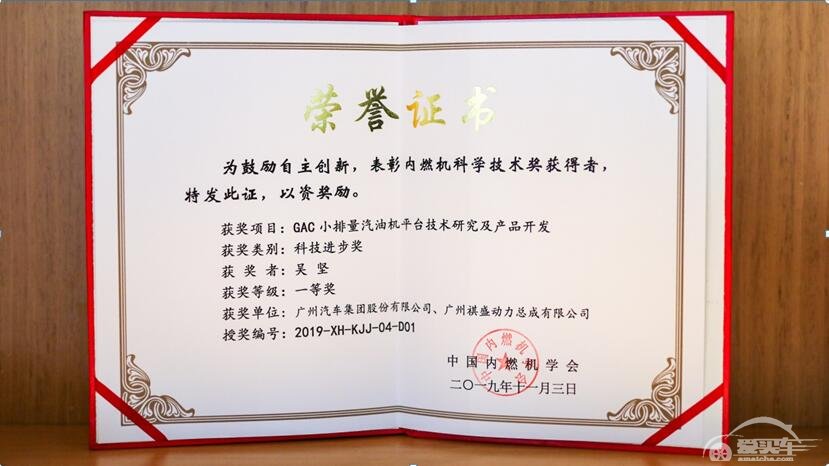 荣誉证书
为鼓励自主创新，表彰内燃机科学技术奖获得者，
特发此证，以资奖励。
获奖项目：GAC 小排量汽油机平台技术研究及产品开发
获奖类别：科技进步奖
获 奖 者：吴 坚
获奖等级：一等奖
获奖单位：广州汽车集团股份有限公司、广州祺盛动力总成有限公司
授奖编号：2019-XH-KJJ-04-D01
中国内燃机学会
中国内燃机学会
二〇一九年十一月三日
爱买车
amaicha.com